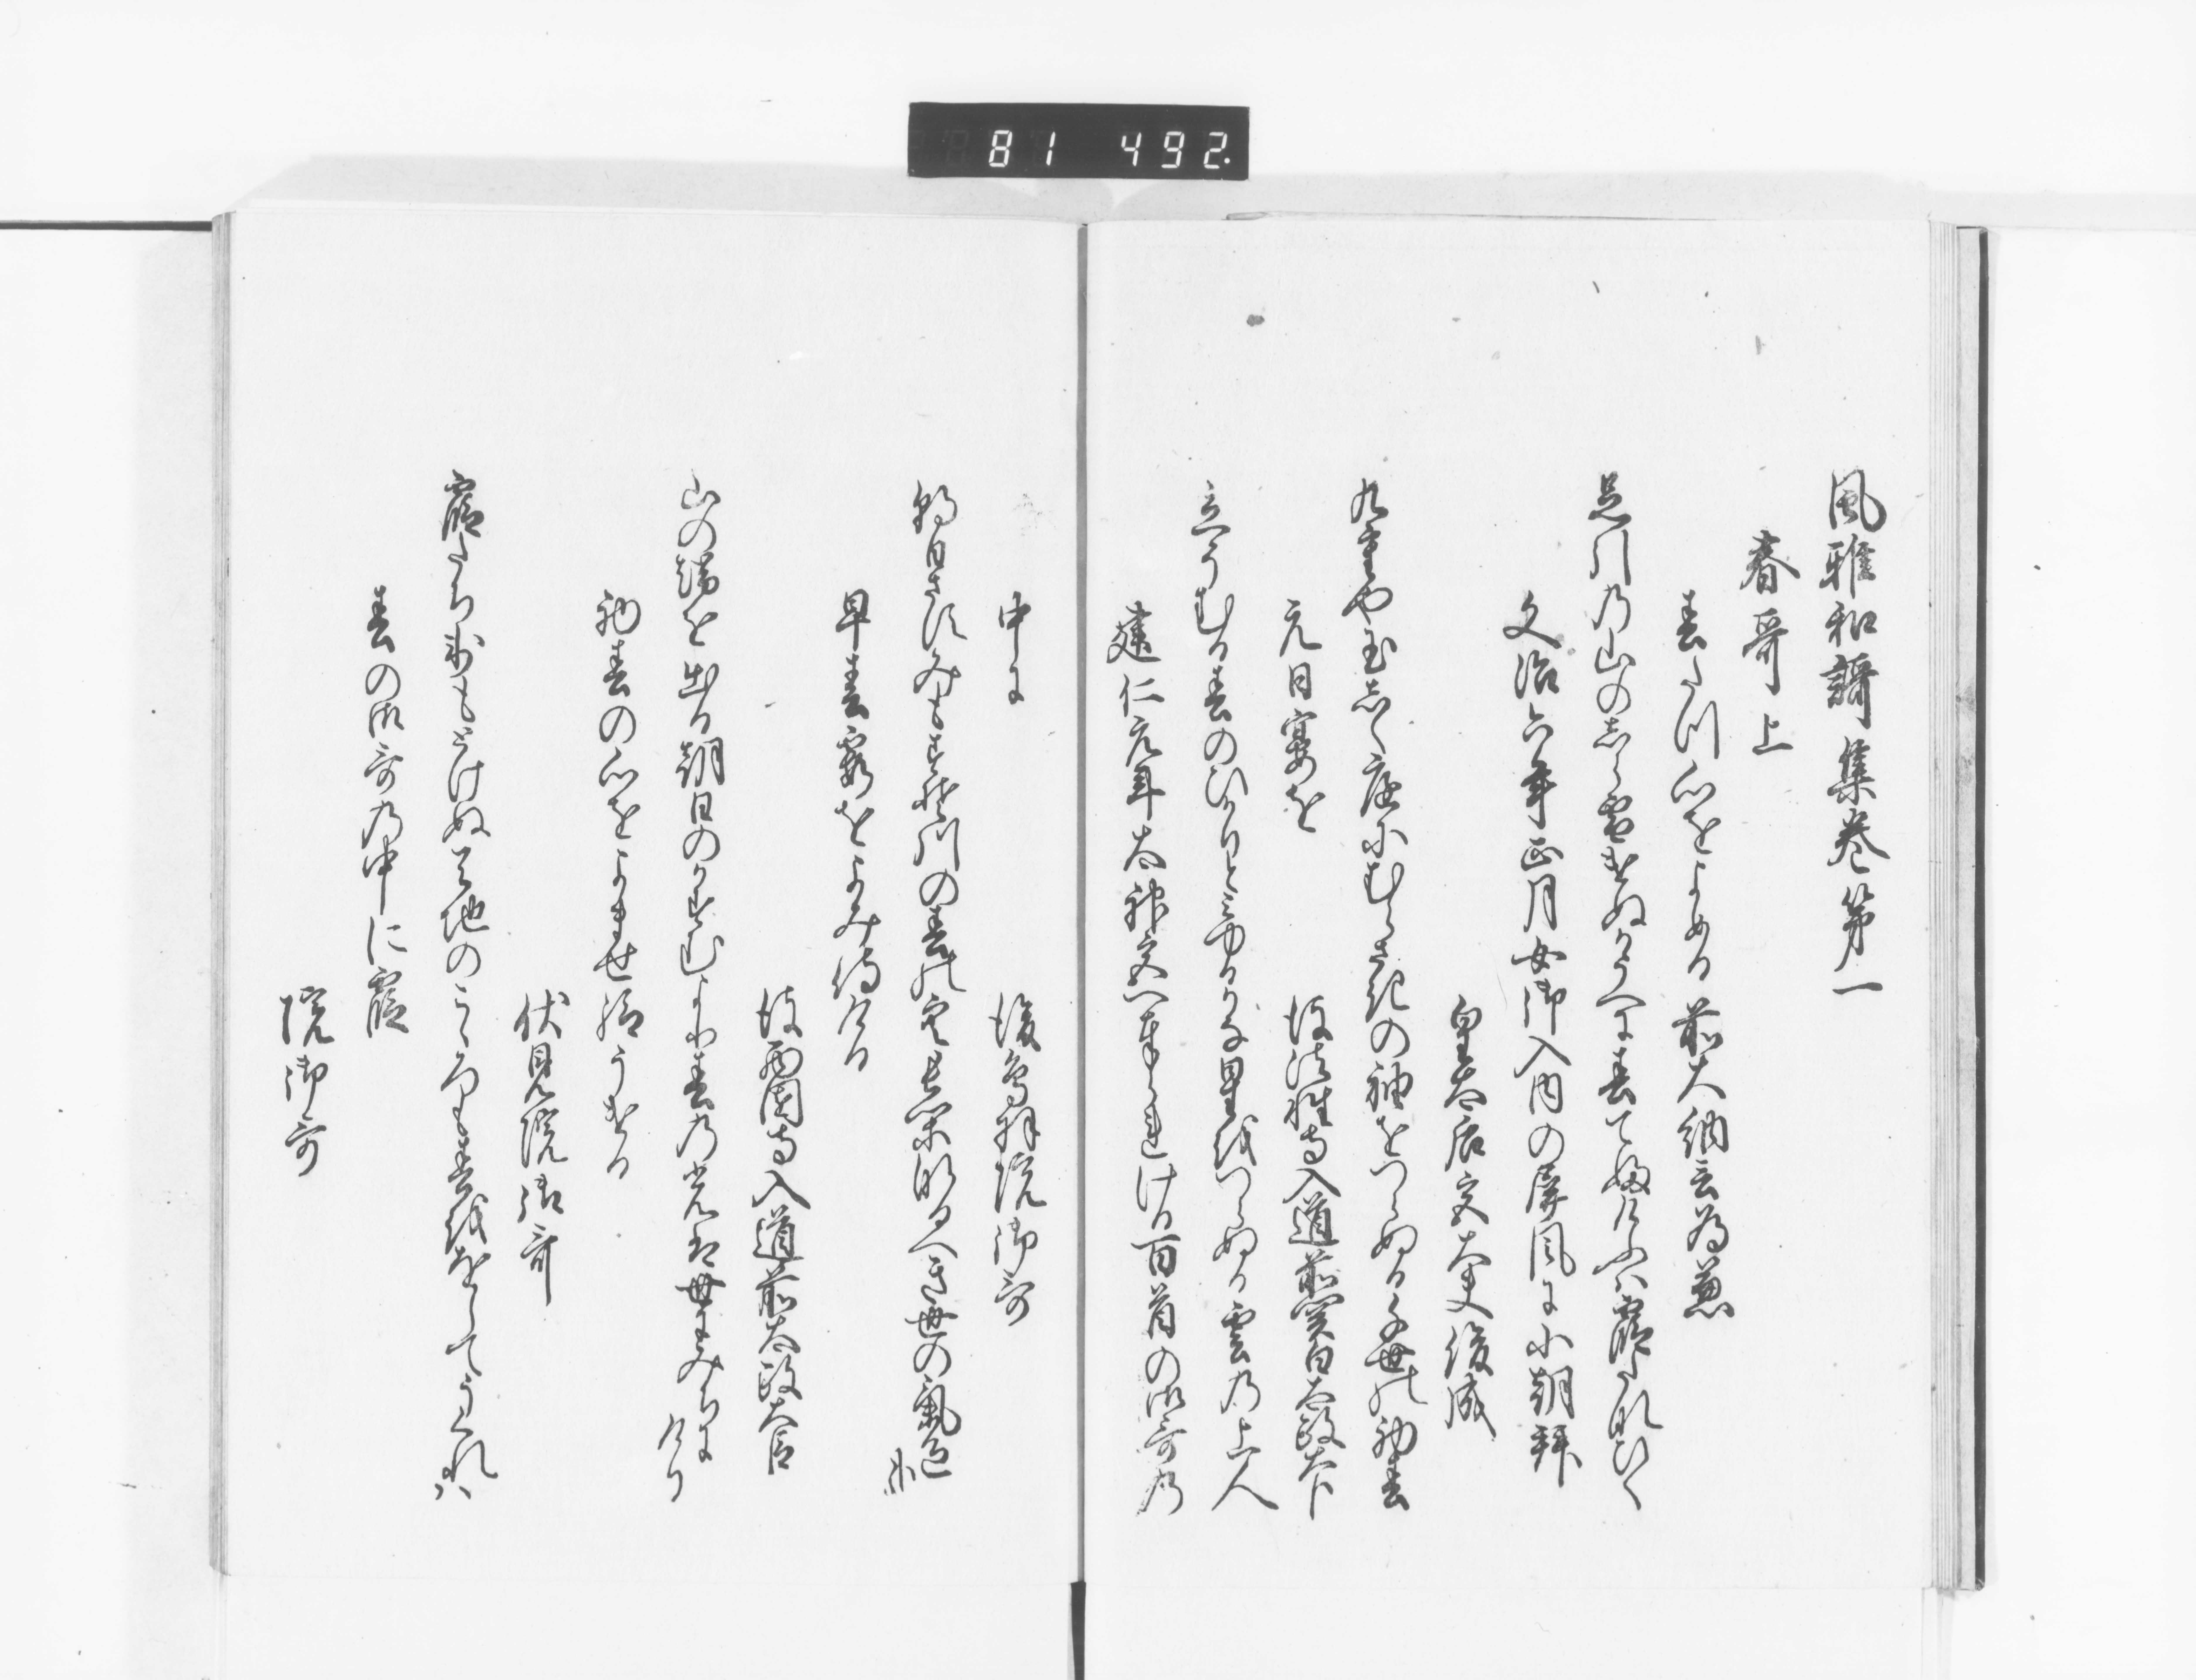 81 492.
風雅和謌集巻第一
春哥上
春たつ心をよめる 前大納言為兼
足引の山のしら雪けぬかうへに春てふけふは霞たなひく
文治六年正月女御入内の屏風に小朝拝
皇太后宮大夫俊成
九重や玉しく庭にむらさきの袖をつらぬる千世の初春
元日宴を
後法性寺入道前関白太政大臣
立そむる春のひかりとみゆるかな星をつらぬる雲の上人
建仁元年太神宮へ奉られける百首の御哥の
中に
後鳥羽院御哥
朝日さすみもすそ川の春の空長閑なるへき世の氣色かな
早春霞をよみ侍ける
後西園寺入道前太政大臣
山の端を出る朝日のかすむより春の光は世にみちにけり
初春の心をよませ給うける
伏見院御哥
霞たち氷もとけぬ天地のこゝろも春をおしてうくれは
春の御哥の中に霞
院御哥